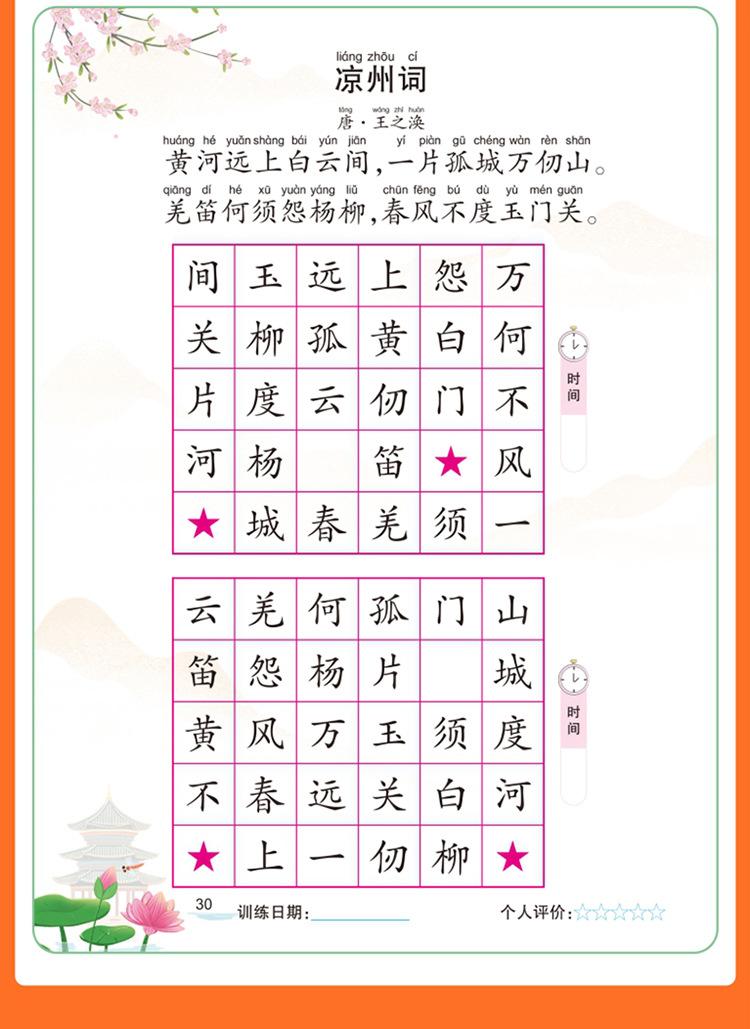 liáng zhōu cí
凉州词
táng wáng zhī huàn
唐·王之涣
huáng hé yuǎn shàng bái yún jiān yí piàn gū chéng wàn rèn shān
黄河远上白云间,一片孤城万仞山。
qiāng dí hé xū yuàn yáng liǔ chūn fēng bú dù yù mén guān
羌笛何须怨杨柳,春风不度玉门关。
间 玉 远 上 怨 万
关 柳 孤 黄 白 何
片 度 云 仞 门 不
河 杨 笛 ★ 风
★ 城 春 羌 须 一
时间
云 羌 何 孤 门 山
笛 怨 杨 片 城
黄 风 万 玉 须 度
不 春 远 关 白 河
★ 上 一 仞 柳 ★
时间
30 训练日期: 个人评价:☆☆☆☆☆